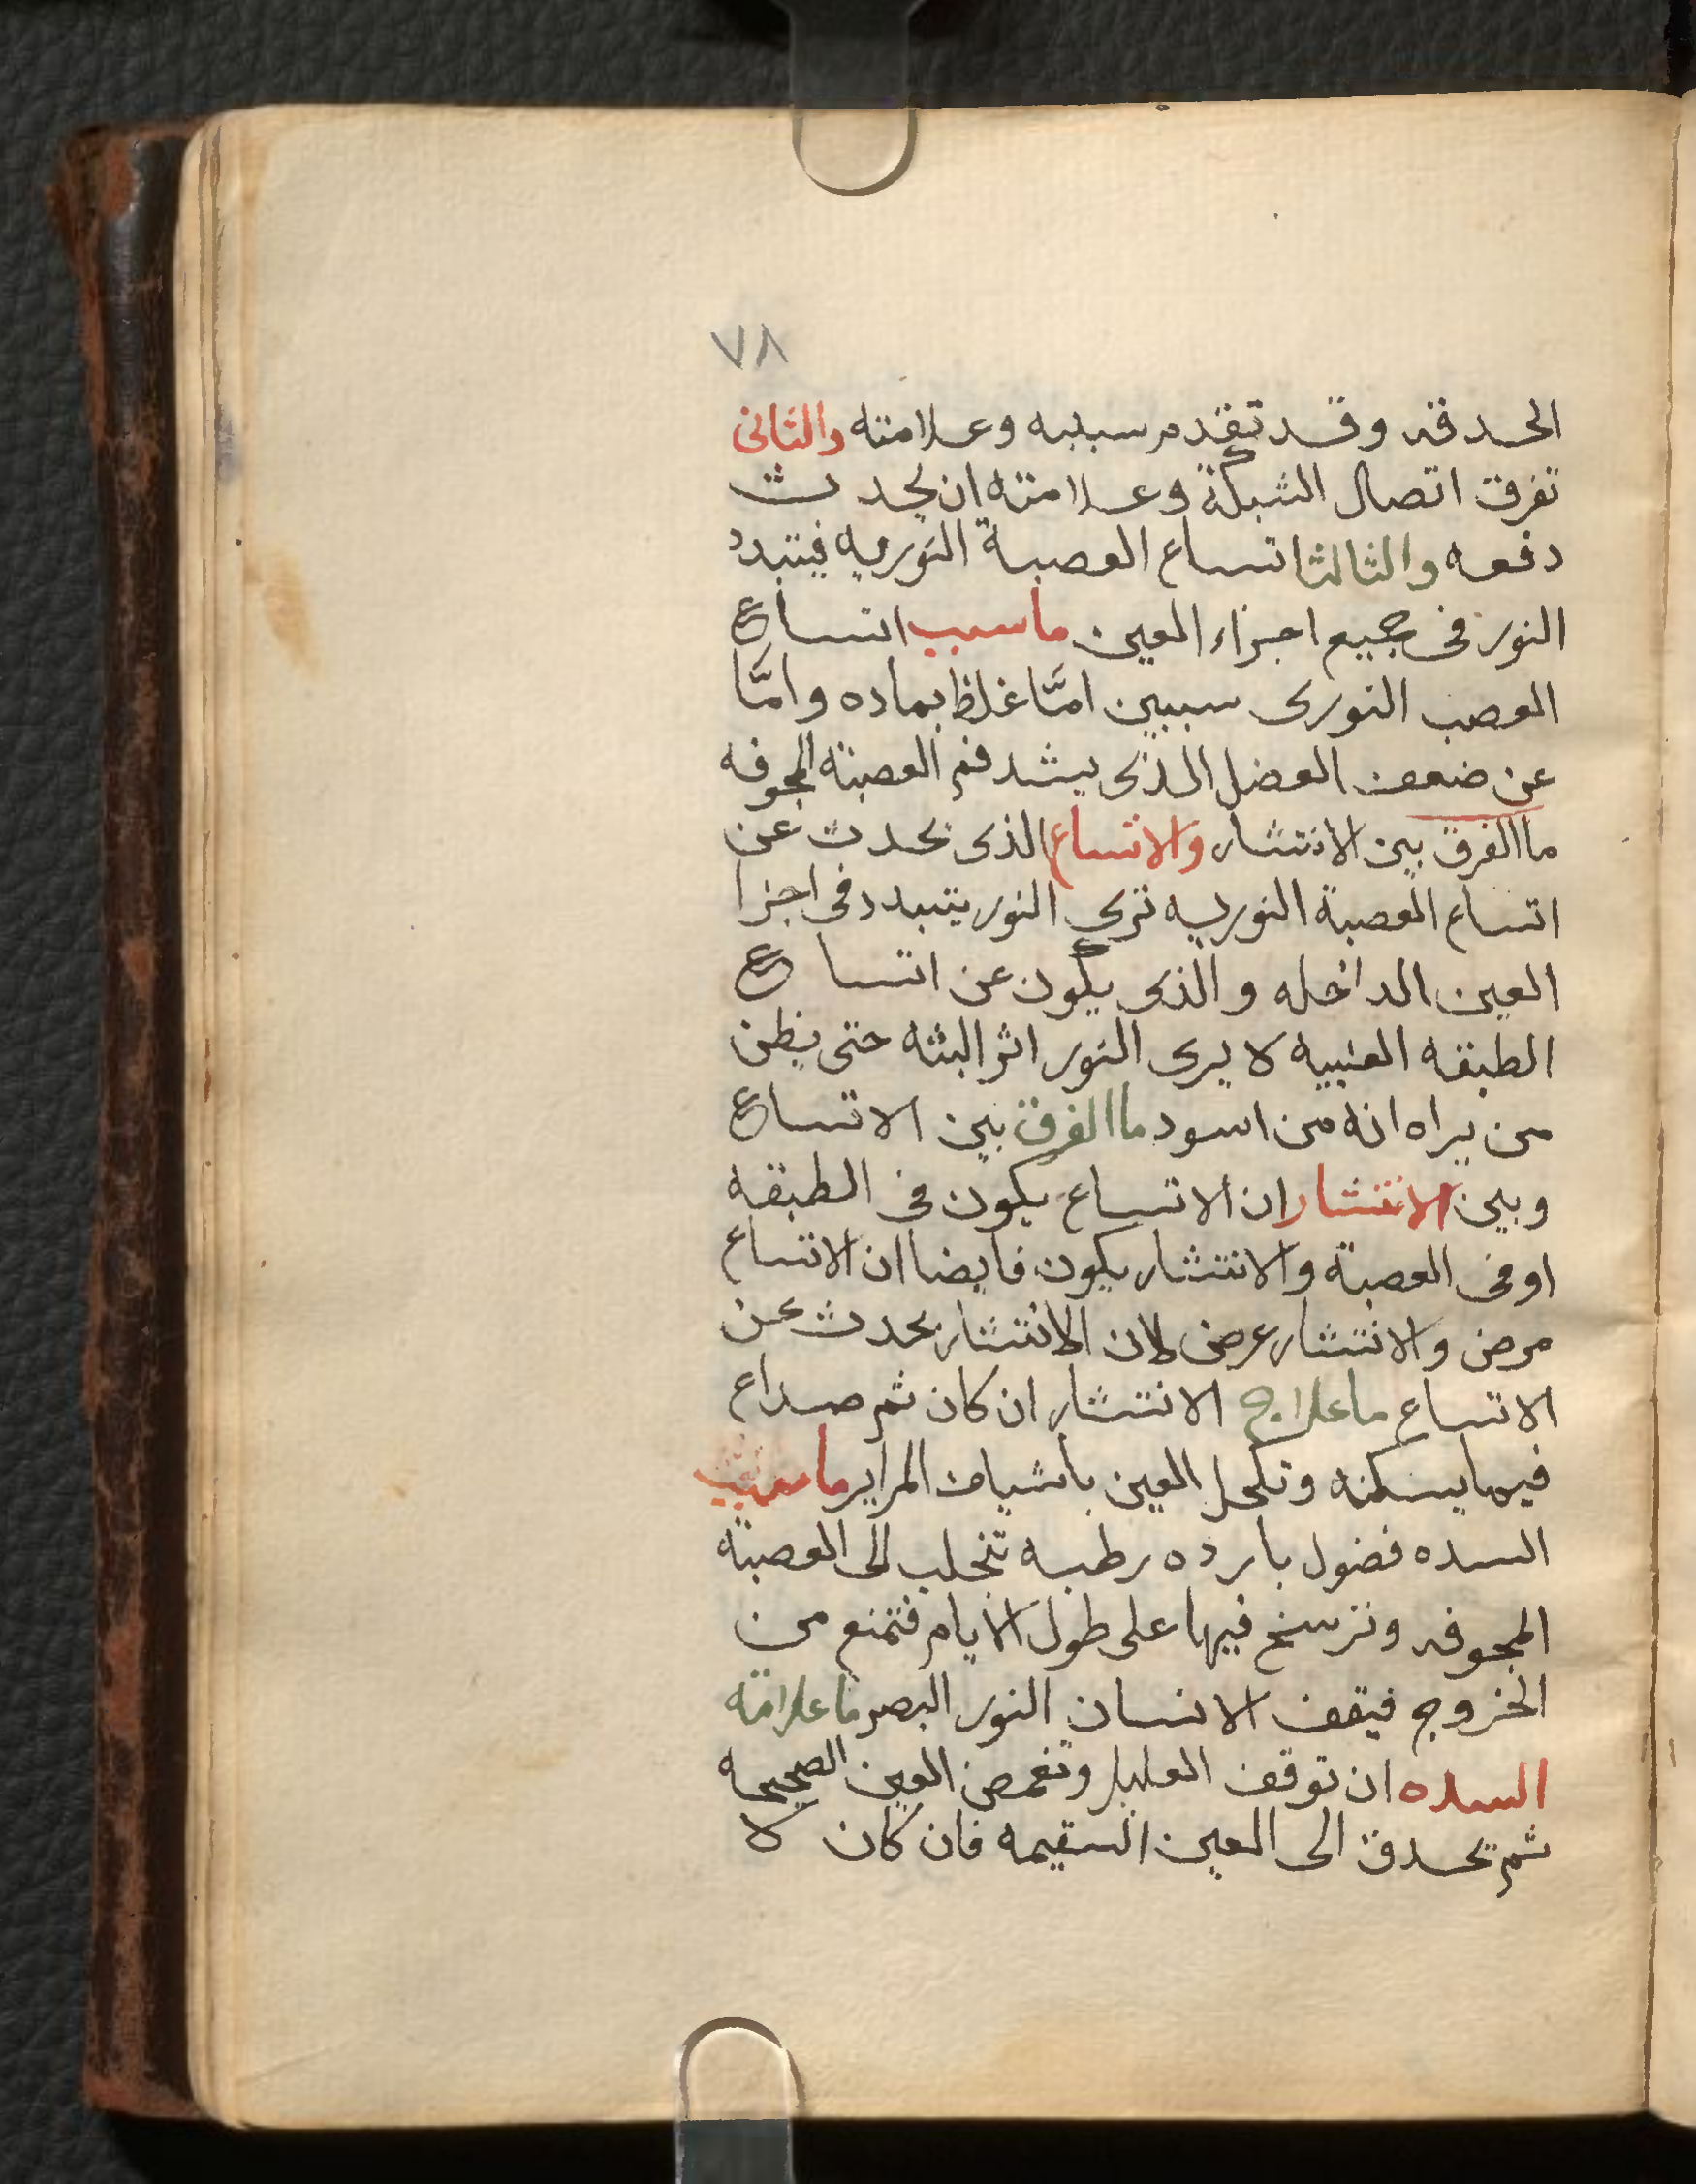 ٧٨
الحدقه وقد تقدم سببه وعلامته والثانى
تفرق اتصال الشبكة وعلامته ان يحدث
دفعه والثالثا تساع العصبة النوريه فيتبدد
النور فى جميع اجزاء العين ما سبب اتساع
العصب النورى سببين امّا غلظ بماده وامّا
عن ضعف العضل الذى يشد فم العصبة المجوفه
ما الفرق بين الانتشار والاتساع الذى يحدث عن
اتساع العصبة النوريه ترى النور يتبدد فى اجزا
العين الداخله والذى يكون عن اتساع
الطبقه العنبيه لا يرى النور اثر البثه حتى يظن
من يراه انه من اسود ما الفرق بين الاتساع
وبين الانتشار ان الاتساع يكون فى الطبقه
او فى العصبة والانتشار يكون فايضا ان الاتساع
مرض والانتشار عرض لان الانتشار يحدث عن
الاتساع ما علاج الانتشار ان كان ثم صداع
فبما يسكنه وتكحل العين باشياف المراير ما سبب
السده فضول بارده رطبه تتجلب الى العصبة
المجوفه وترسخ فيها على طول الايام فتمنع من
الخروج فيقف الانسان النور البصر ما علامة
السده ان توقف العليل وتغمض العين الصحيحه
ثم تحدق الى العين السقيمه فان كان لا